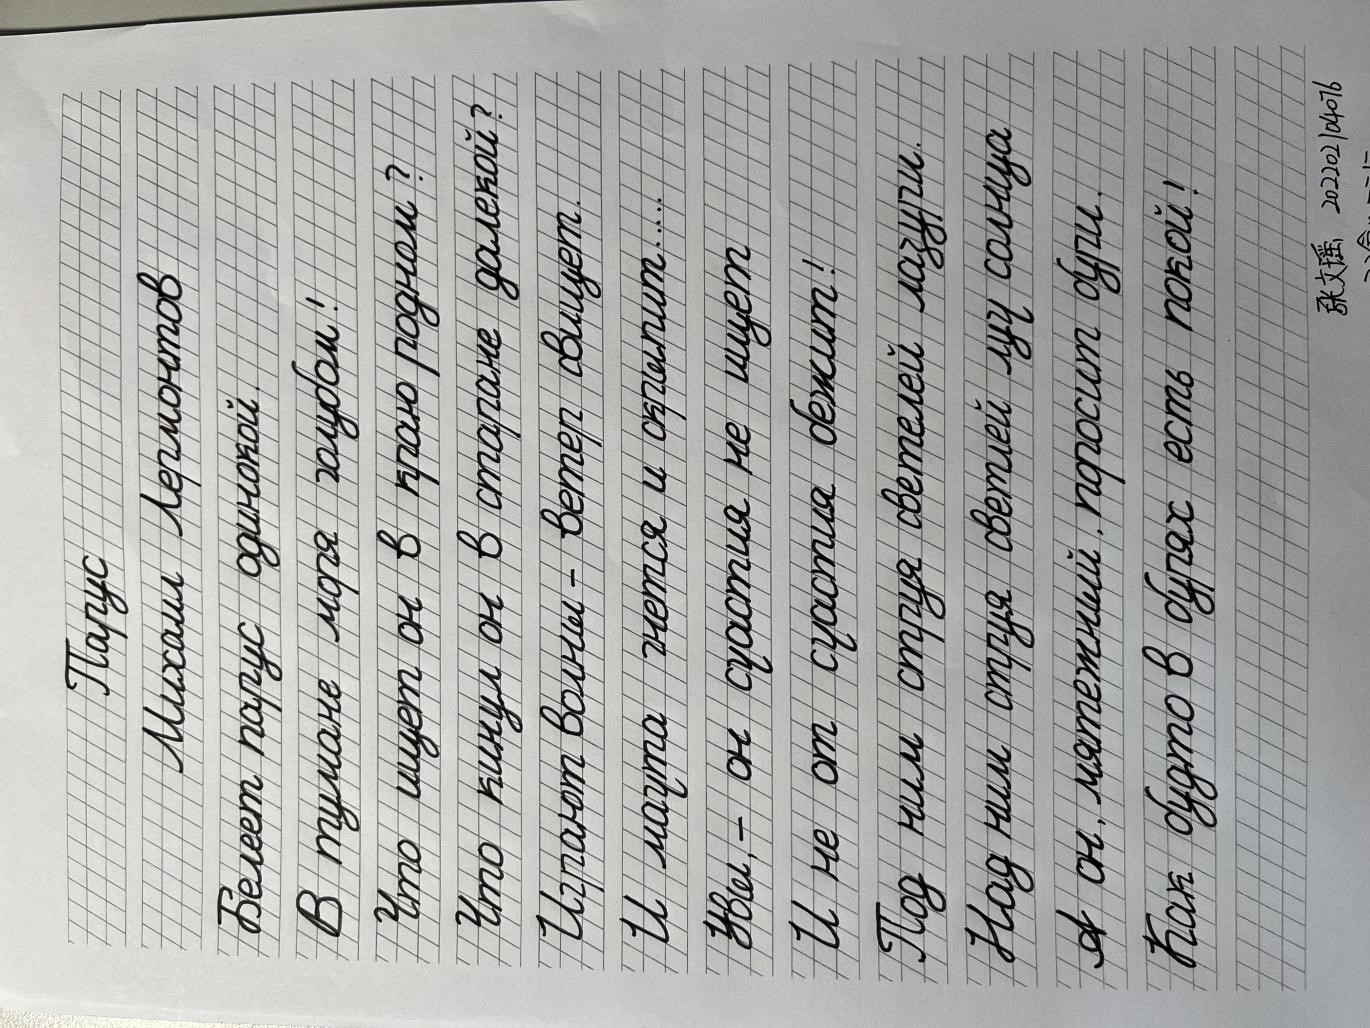 Парус
Михаил Лермонтов
Белеет парус одинокой.
В тумане моря голубом!
Что ищет он в краю родном?
Что кинул он в старане далекой?
Играют волны - ветер свищет.
И мачта гнется и скрыпит.....
Увы, - он счастия не ищет
И не от счастия бежит!
Под ним струя светелей лазури.
Над ним струя светлей луч солнца
А он, мятежный, просит бури.
Как будто в бурях есть покой!
张文瑶 202202104076